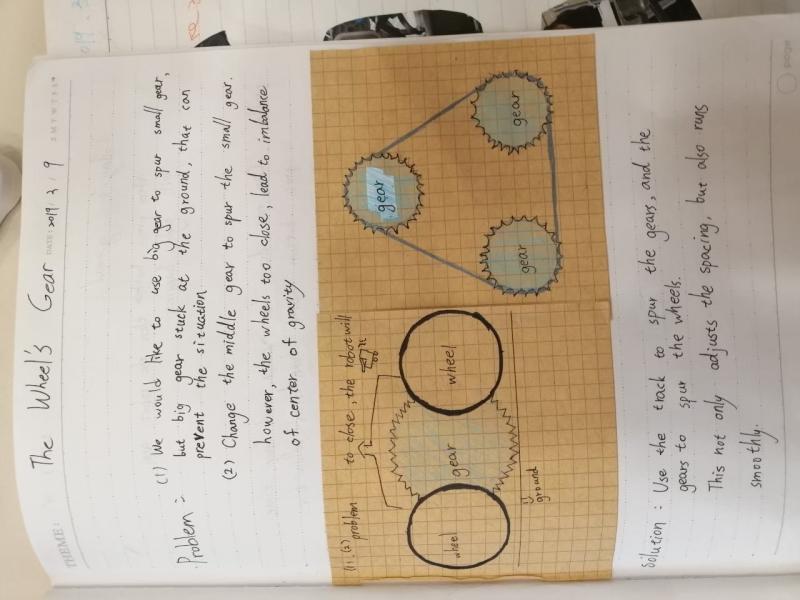 THEME: The Wheel's Gear DATE: 2019 / 3 / 9 S M T W T F S
Problem: (1) We would like to use big gear to spur small gear,
but big gear stuck at the ground, that can
prevent the situation
(2) Change the middle gear to spur the small gear.
however, the wheels too close, lead to imbalance
of center of gravity
(1) (2) problem
to close, the robot will
wheel
gear
wheel
ground
gear
gear
gear
Solution: Use the track to spur the gears, and the
gears to spur the wheels.
This not only adjusts the spacing, but also runs
smoothly.
page